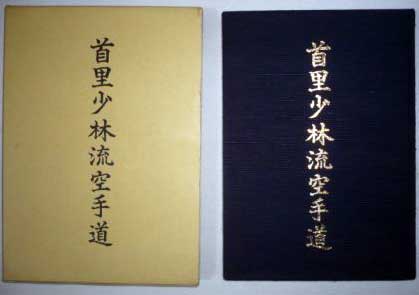 首里少林流空手道
首里少林流空手道